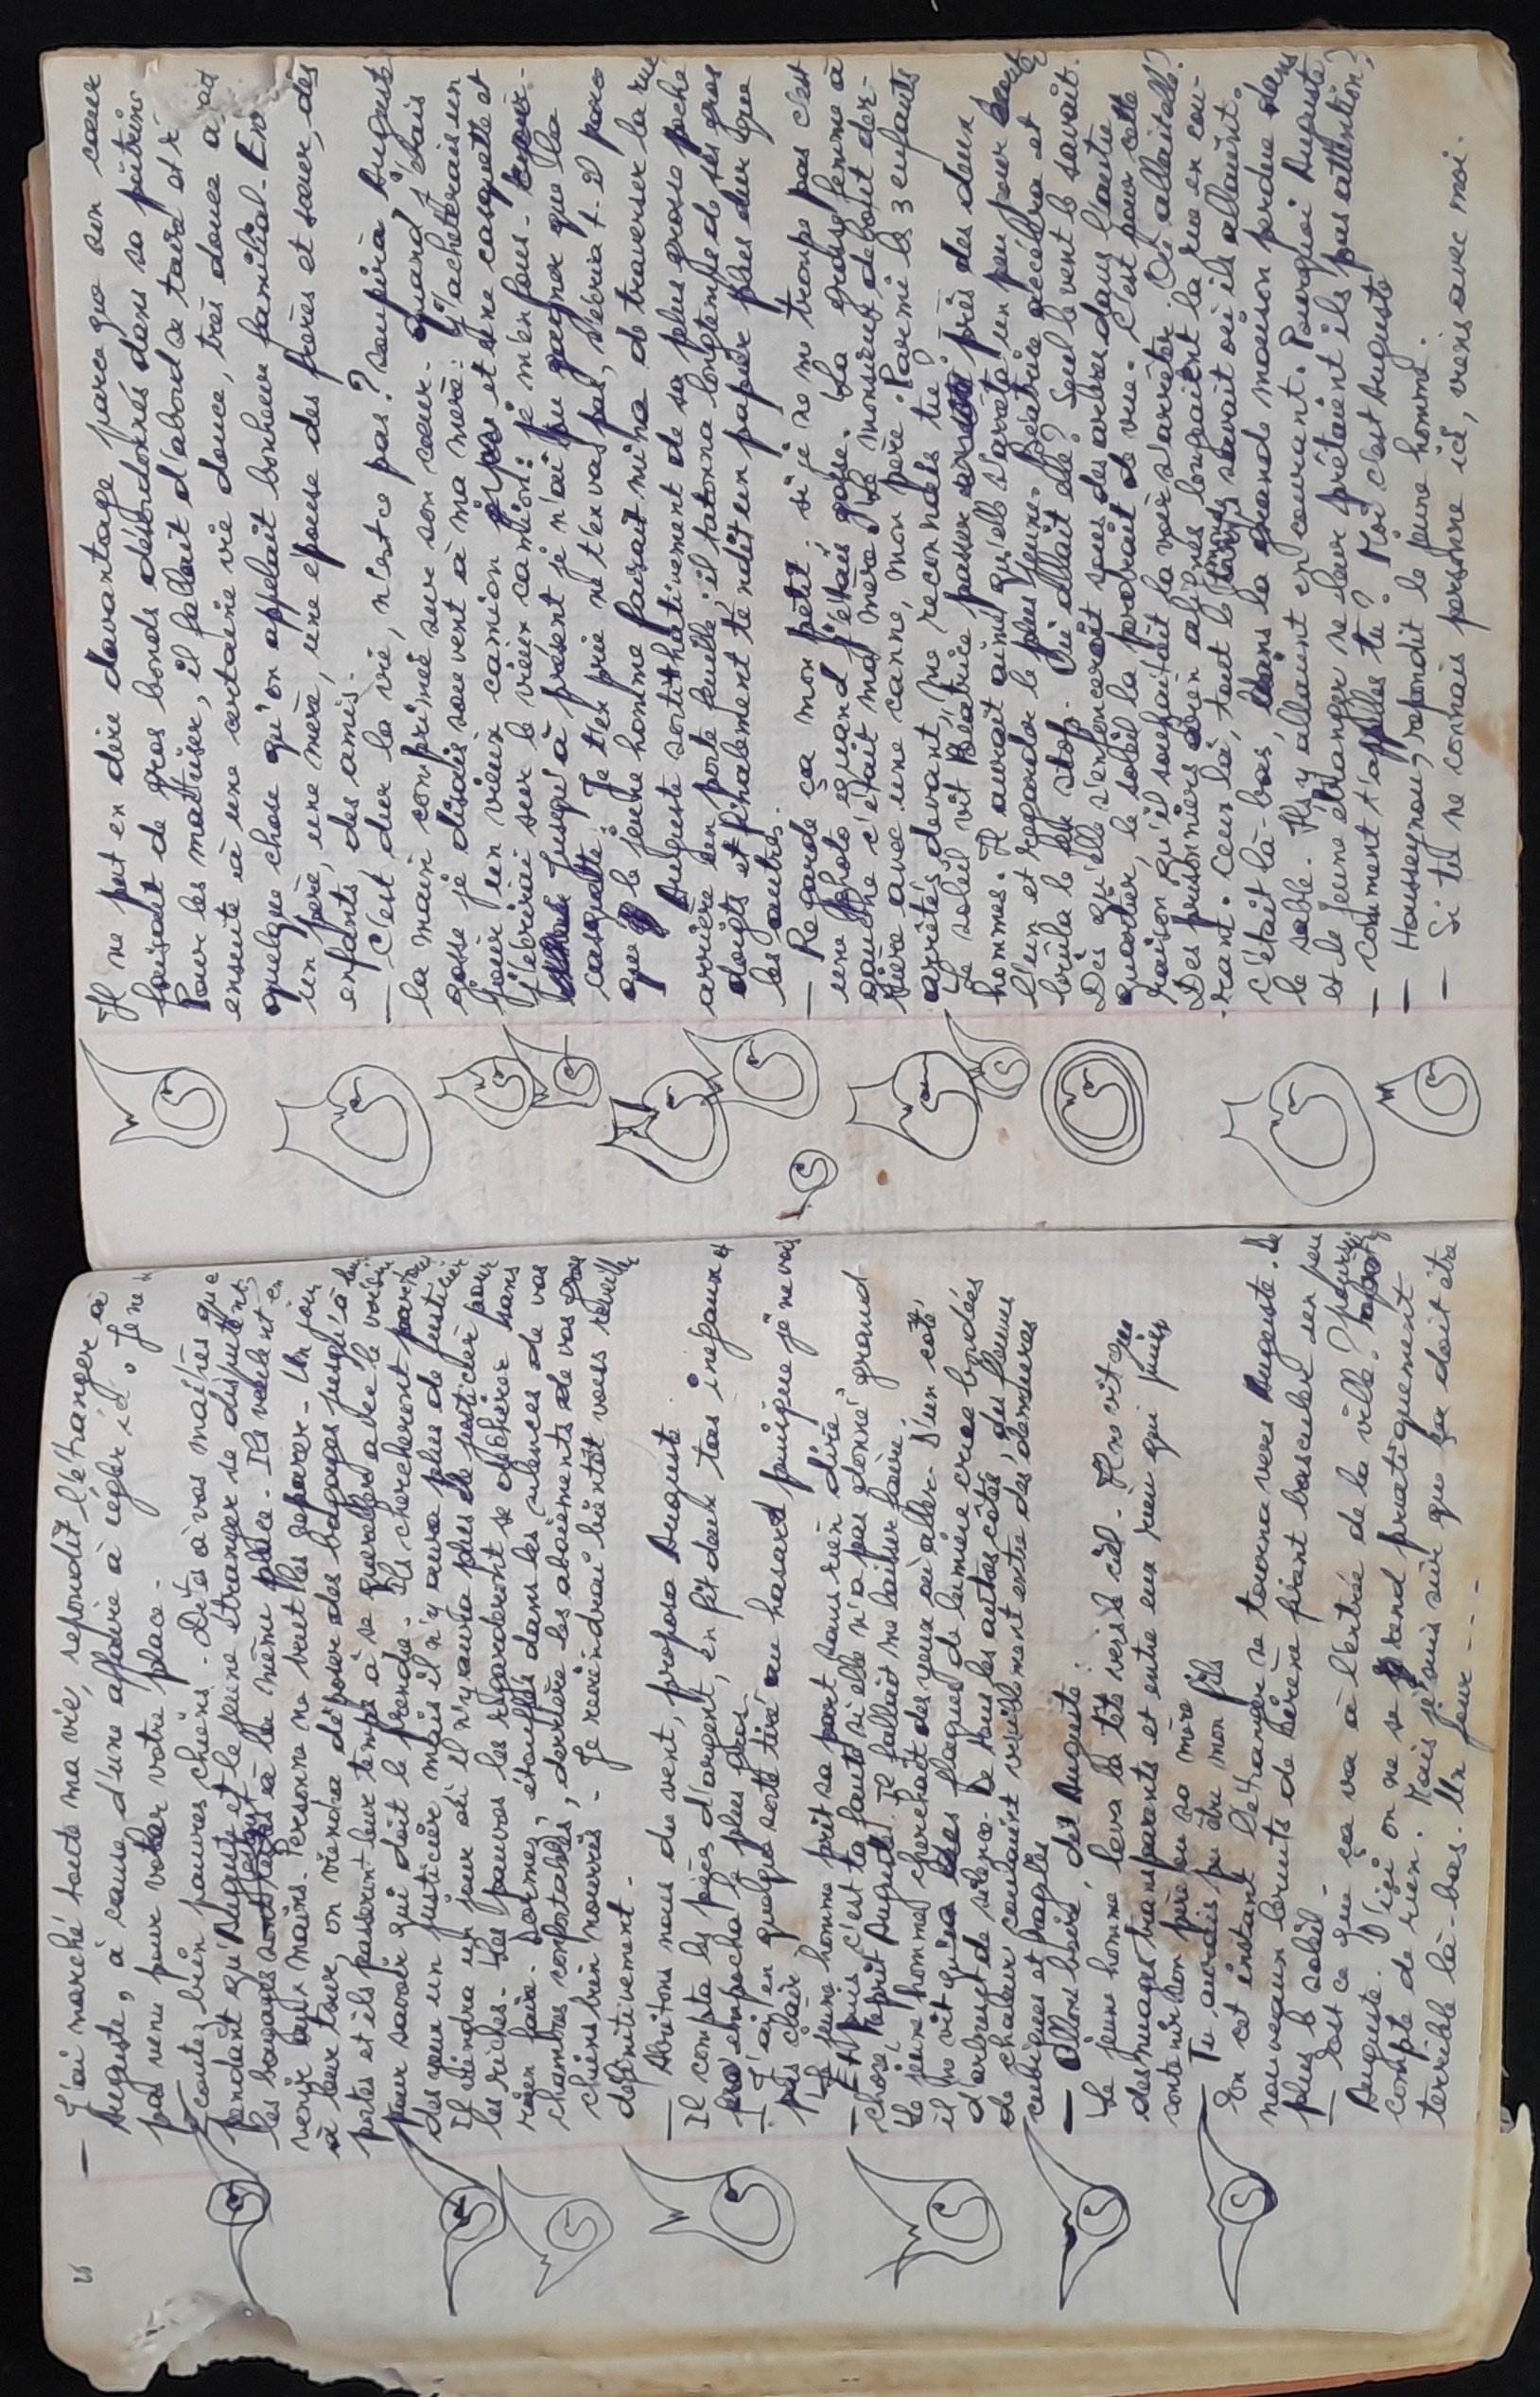 25
— J'ai marché toute ma vie, repondit l'étranger à
Auguste, à cause d'une affaire à régler ici. Je ne
pas venu pour voler votre place.
Ecoutez bien pauvres chiens. Dites à vos maitres que
pendant qu'Auguste et le jeune étranger se disputent,
les bagages sont à la même place. Ils veulent en
venir aux mains. Personne ne veut les separer. Un jour
à leur tour, on viendra déposer des bagages jusqu'à leurs
portes et ils passeront leur temps à se quereller avec le voisin
pour savoir qui doit le prendre. Ils chercheront partout
des yeux un justicier mais il n'y aura plus de justicier
Il viendra un jour où il n'y aura plus de justicier pour
les riches. Les pauvres les regarderont se déchirer sans
rien faire. Dormez, étouffés dans les silences de vos
chambres confortables, derrière les aboiements de vos gros
chiens bien nourris. Je reviendrai bientôt vous réveiller
définitivement.
— Abritons nous du vent, proposa Auguste.
Il compta les pièces d'argent, en fit deux tas inégaux et
empocha le plus gros.
— J'ai en quelque sorte tiré au hasard puisque je ne vois
pas clair.
Le jeune homme prit sa part sans rien dire.
— Et puis c'est ta faute si elle n'a pas donné grand
chose, reprit Auguste. Il fallait me laisser faire.
Le jeune homme cherchait des yeux où aller. D'un coté,
il ne vit qu'une flaques de lumière criee bondées
d'arbres et de silence. De tous les autres côtés, des fleuves
de chaleur coulaient visiblement entre des demeures
cubiques et fragiles
— Allons boire, dit Auguste.
Le jeune homme leva la tête vers le ciel. Il ne vit que
des nuages transparents et entre eux rien qui puisse
contenir son père ou sa mère
— Tu aurais pu être mon fils
En cet instant l'étranger se tourna vers Auguste. De
nouveaux bruits de sirène firent basculer un peu
plus le soleil.
— Est ce que ça va à l'entrée de la ville? poursuivit
Auguste. D'ici on ne se rend pratiquement
compte de rien. Mais je suis sûr que ça doit être
terrible là-bas. Un jour - - - -
Il ne put en dire davantage parce que son cœur
faisait de gros bonds désordonnés dans sa poitrine
Pour les maîtriser, il fallait d'abord se taire et r
ensuite à une certaine vie douce, très douce a
quelque chose qu'on appelait bonheur familial. En
un père, une mère, une epouse des frères et sœur, des
enfants, des amis.
— C'est dur la vie, n'est ce pas? soupira Auguste
la main comprimée sur son cœur. Quand j'étais
gosse je disais souvent à ma mère: j'acheterais un
jour un vieux camion et une casquette et
j'écrirai sur le vieux camion: je m'en fous.
Jusqu'à présent je n'ai pu gagner que la
casquette. Je t'en prie ne t'en vas pas, s'écria t-il parce
que le jeune homme faisait mine de traverser la rue
Auguste sortit hativement de sa plus grosse poche
arrière un porte feuille, il tatonna longtemps de ses gros
doigts et finalement tendit un papier plus dur que
les autres.
— Regarde ça mon petit: si je ne me trompe pas c'est
une photo quand j'étais gosse. La grosse femme à
gauche c'était ma mère. Le monsieur debout der-
rière avec une canne, mon père. Parmi les 3 enfants
arrêtés devant, me reconnais tu?
Le soleil vit Beatrice passer près des deux
hommes. Il aurait aimé qu'elle s'arrêta un peu pour
l'un et regarder le plus jeune. Béatrice accéléra et
brûla le feu stop. Où allait elle? Seul le vent le savait.
Dès qu'elle s'enfoncerait sous des arbres dans l'autre
quartier, le soleil la perdrait de vue. C'est pour cette
raison qu'il souhaitait la voir s'arrêter. Où allait elle?
Des prisonniers bien alignés longeaient la rue en cou-
rant. Ceux là, tout le monde savait où ils allaient.
C'était là-bas, dans la grande maison perdue dans
le sable. Ils y allaient en courant. Pourquoi Auguste
et le jeune étranger ne leur prêtaient ils pas attention?
— Comment t'appelles tu? Moi c'est Auguste
— Housseynou, repondit le jeune homme.
— Si tu ne connais personne ici, viens avec moi.